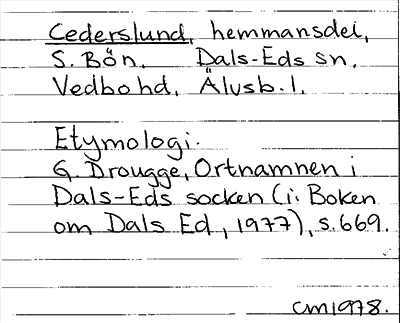 Cederslund, hemmansdel,
S. Bön. Dals-Eds sn.
Vedbo hd. Älvsb. l.
Etymologi.
G. Drougge, Ortnamnen i
Dals-Eds socken (i: Boken
om Dals Ed, 1977), s. 669.
CM 1978.